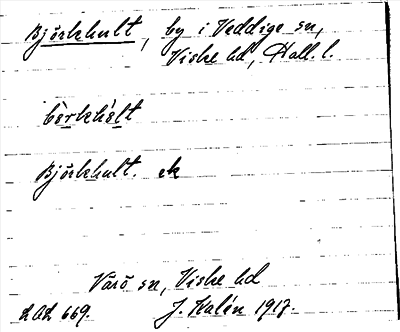 Björkhult, by i Veddige sn,
Viske hd, Hall. l.
bèrkhélt
Björkhult. ek
Värö sn, Viske hd
LAL 669. J. Kalén 1917.